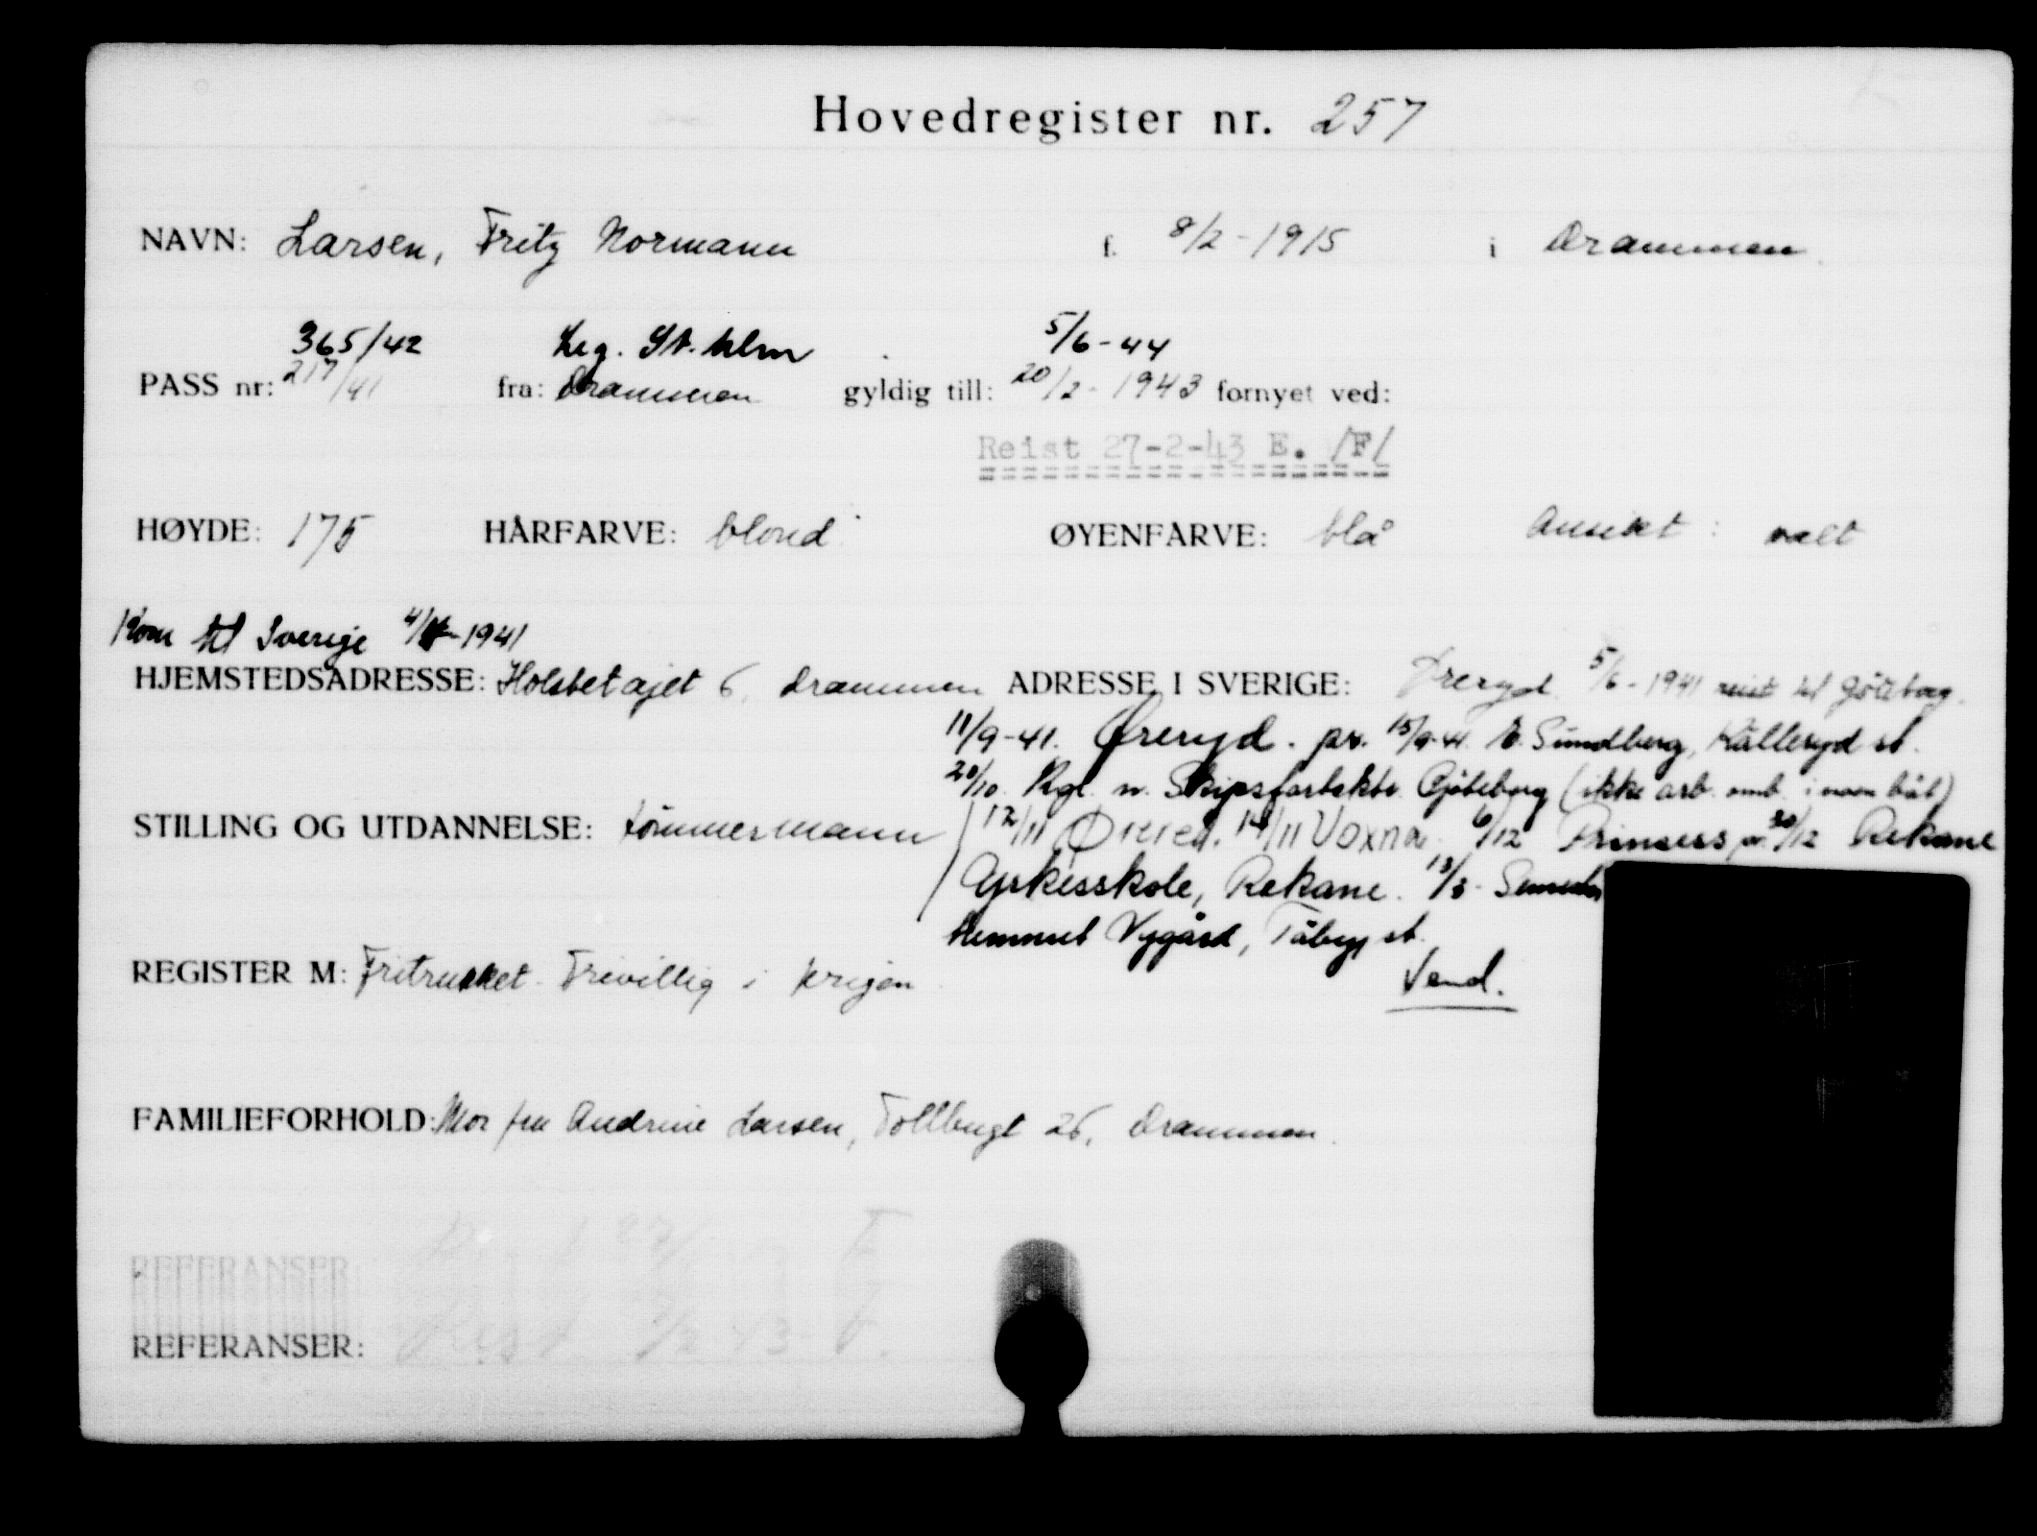 Hovedregister nr. 257
NAVN: Larsen, Fritz Normann f. 8/2-1915 i Drammen.
365/42 Leg. St.hlm 5/6-44
PASS nr: 217/41 fra: Drammen gyldig till: 20/2-1943 fornyet ved:
Reist 27-2-43 E. /F/
HØYDE: 175 HÅRFARVE: blond ØYENFARVE: blå Ansikt: ovalt
Kom til Sverige 4/ -1941
HJEMSTEDSADRESSE: 6, Drammen ADRESSE I SVERIGE: Øreryd 5/6-1941 reist til Göteborg.
11/9-41. Øreryd. pr. 15/9-41. E. Sundberg, Kålleryd st.
20/10. Rgl. n. Skipsfartsktr. Gøteborg (ikke arb. omb. i noen båt)
STILLING OG UTDANNELSE: tømmermann 12/11 14/11 Voxna 6/12 Prinsess pr. 30/12 Rekane
Yrkesskole, Rekane. 13/3-
Hemmet Vygård, Täby st.
REGISTER M: Fritrukket. Frivillig i krigen
Vend.
FAMILIEFORHOLD: Mor fru Andrine Larsen, Tollbugt 26, Drammen.
REFERANSER: